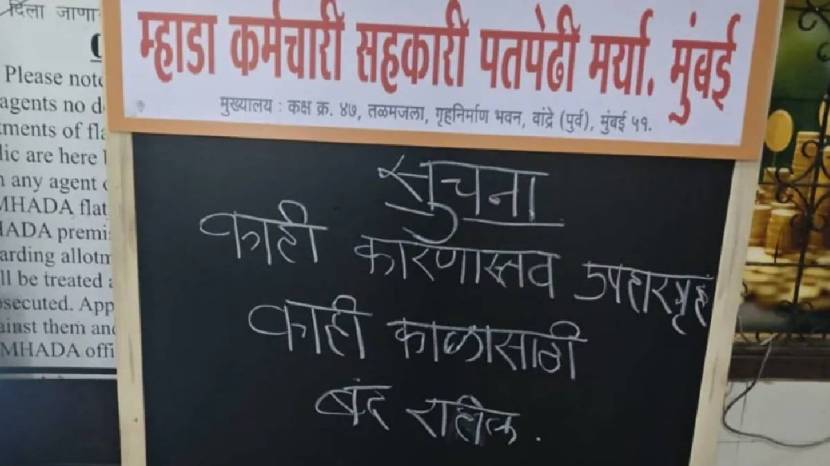 दिला जाणा
म्हाडा कर्मचारी सहकारी पतपेढी मर्या. मुंबई
मुख्यालय : कक्ष क्र. ४७, तळमजला, गृहनिर्माण भवन, वांद्रे (पुर्व), मुंबई ५१.
Please note
agents no d
ments of fla
lic are here
any agent
MHADA flat
ADA premi
arding allotm
ll be treated
secuted. App
ainst them and
MHADA offi
सुचना
काही कारणास्तव उपहारगृह
काही काळासाठी
बंद राहील.